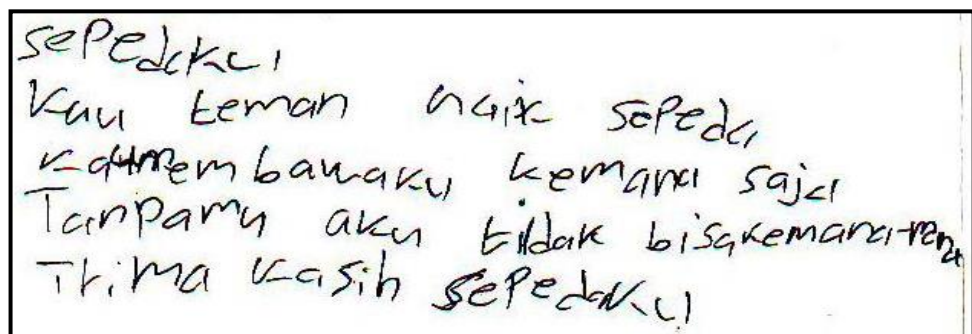 sepedaku
Kau teman naik sepeda
kaumembawaku kemana saja
Tanpamu aku tidak bisakemana-mana
Trima kasih sepedaku